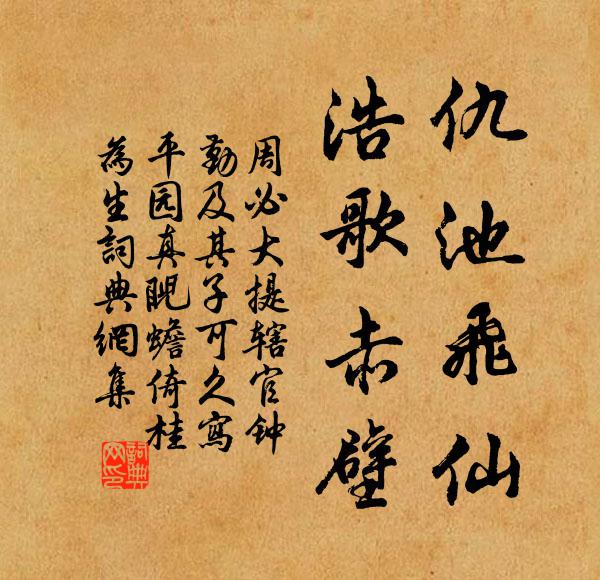 仇池飛仙
浩歌赤壁
周必大提辖官钟
勤及其子可久寫
平园真睨蟾倚桂
為生詞典網集
詞典
网印